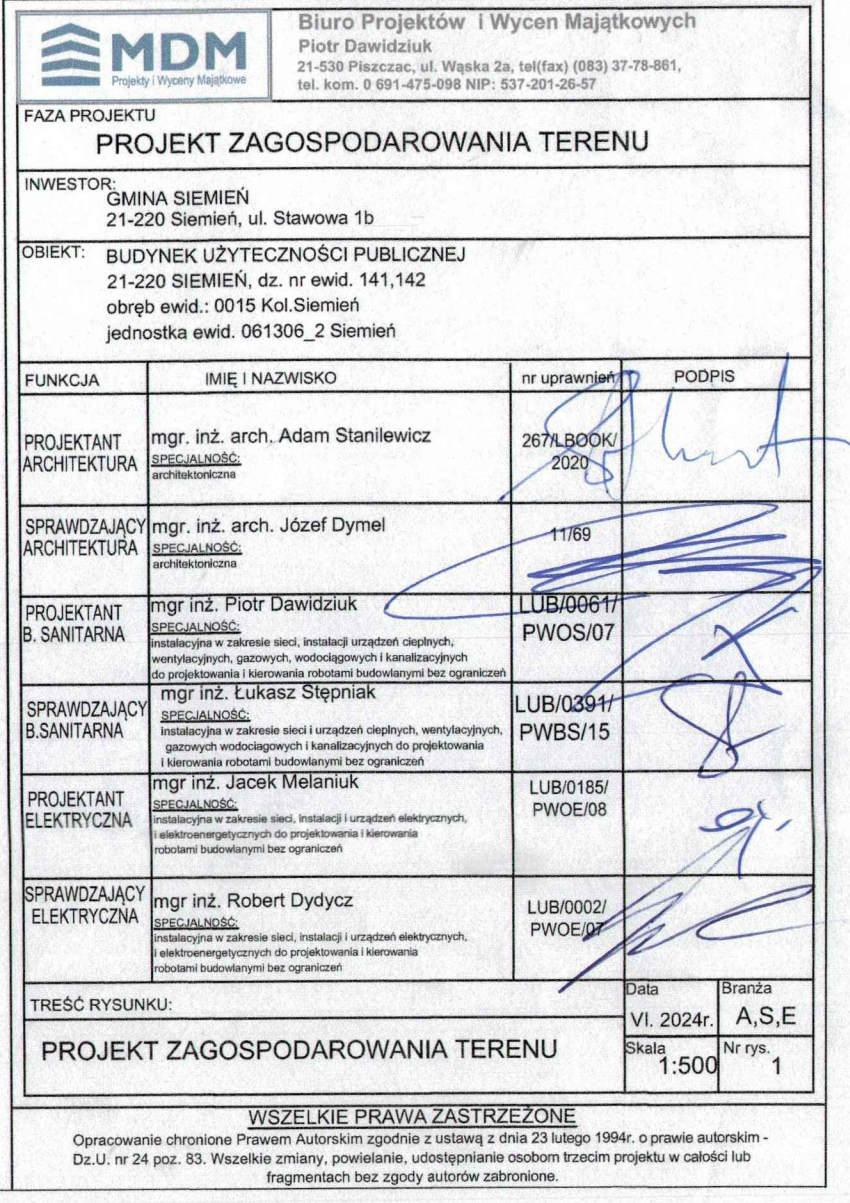 MDM
Projekty i Wyceny Majątkowe
Biuro Projektów i Wycen Majątkowych
Piotr Dawidziuk
21-530 Piszczac, ul. Wąska 2a, tel(fax) (083) 37-78-861,
tel. kom. 0 691-475-098 NIP: 537-201-26-57
FAZA PROJEKTU
PROJEKT ZAGOSPODAROWANIA TERENU
INWESTOR:
GMINA SIEMIEŃ
21-220 Siemień, ul. Stawowa 1b
OBIEKT:
BUDYNEK UŻYTECZNOŚCI PUBLICZNEJ
21-220 SIEMIEŃ, dz. nr ewid. 141,142
obręb ewid.: 0015 Kol.Siemień
jednostka ewid. 061306_2 Siemień
FUNKCJA IMIĘ I NAZWISKO nr uprawnień PODPIS
PROJEKTANT
ARCHITEKTURA
mgr. inż. arch. Adam Stanilewicz
SPECJALNOŚĆ:
architektoniczna
267/LBOOK/
2020
SPRAWDZAJĄCY
ARCHITEKTURA
mgr. inż. arch. Józef Dymel
SPECJALNOŚĆ:
architektoniczna
11/69
PROJEKTANT
B. SANITARNA
mgr inż. Piotr Dawidziuk
SPECJALNOŚĆ:
instalacyjna w zakresie sieci, instalacji urządzeń cieplnych,
wentylacyjnych, gazowych, wodociągowych i kanalizacyjnych
do projektowania i kierowania robotami budowlanymi bez ograniczeń
LUB/0061/
PWOS/07
SPRAWDZAJĄCY
B.SANITARNA
mgr inż. Łukasz Stępniak
SPECJALNOŚĆ:
instalacyjna w zakresie sieci i urządzeń cieplnych, wentylacyjnych,
gazowych wodociagowych i kanalizacyjnych do projektowania
i kierowania robotami budowlanymi bez ograniczeń
LUB/0391/
PWBS/15
PROJEKTANT
ELEKTRYCZNA
mgr inż. Jacek Melaniuk
SPECJALNOŚĆ:
instalacyjna w zakresie sieci, instalacji i urządzeń elektrycznych,
i elektroenergetycznych do projektowania i kierowania
robotami budowlanymi bez ograniczeń
LUB/0185/
PWOE/08
SPRAWDZAJĄCY
ELEKTRYCZNA
mgr inż. Robert Dydycz
SPECJALNOŚĆ:
instalacyjna w zakresie sieci, instalacji i urządzeń elektrycznych,
i elektroenergetycznych do projektowania i kierowania
robotami budowlanymi bez ograniczeń
LUB/0002/
PWOE/07
TREŚĆ RYSUNKU:
PROJEKT ZAGOSPODAROWANIA TERENU
Data
VI. 2024r.
Branża
A,S,E
Skala
1:500
Nr rys.
1
WSZELKIE PRAWA ZASTRZEŻONE
Opracowanie chronione Prawem Autorskim zgodnie z ustawą z dnia 23 lutego 1994r. o prawie autorskim -
Dz.U. nr 24 poz. 83. Wszelkie zmiany, powielanie, udostępnianie osobom trzecim projektu w całości lub
fragmentach bez zgody autorów zabronione.